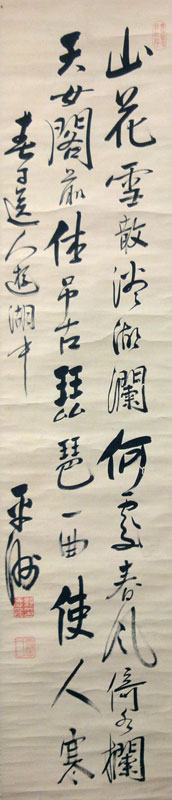 山花雪散滿湖瀾何處春風倚欄
天女閣前弔古琵琶一曲使人寒
春日送人遊湖中
平洲